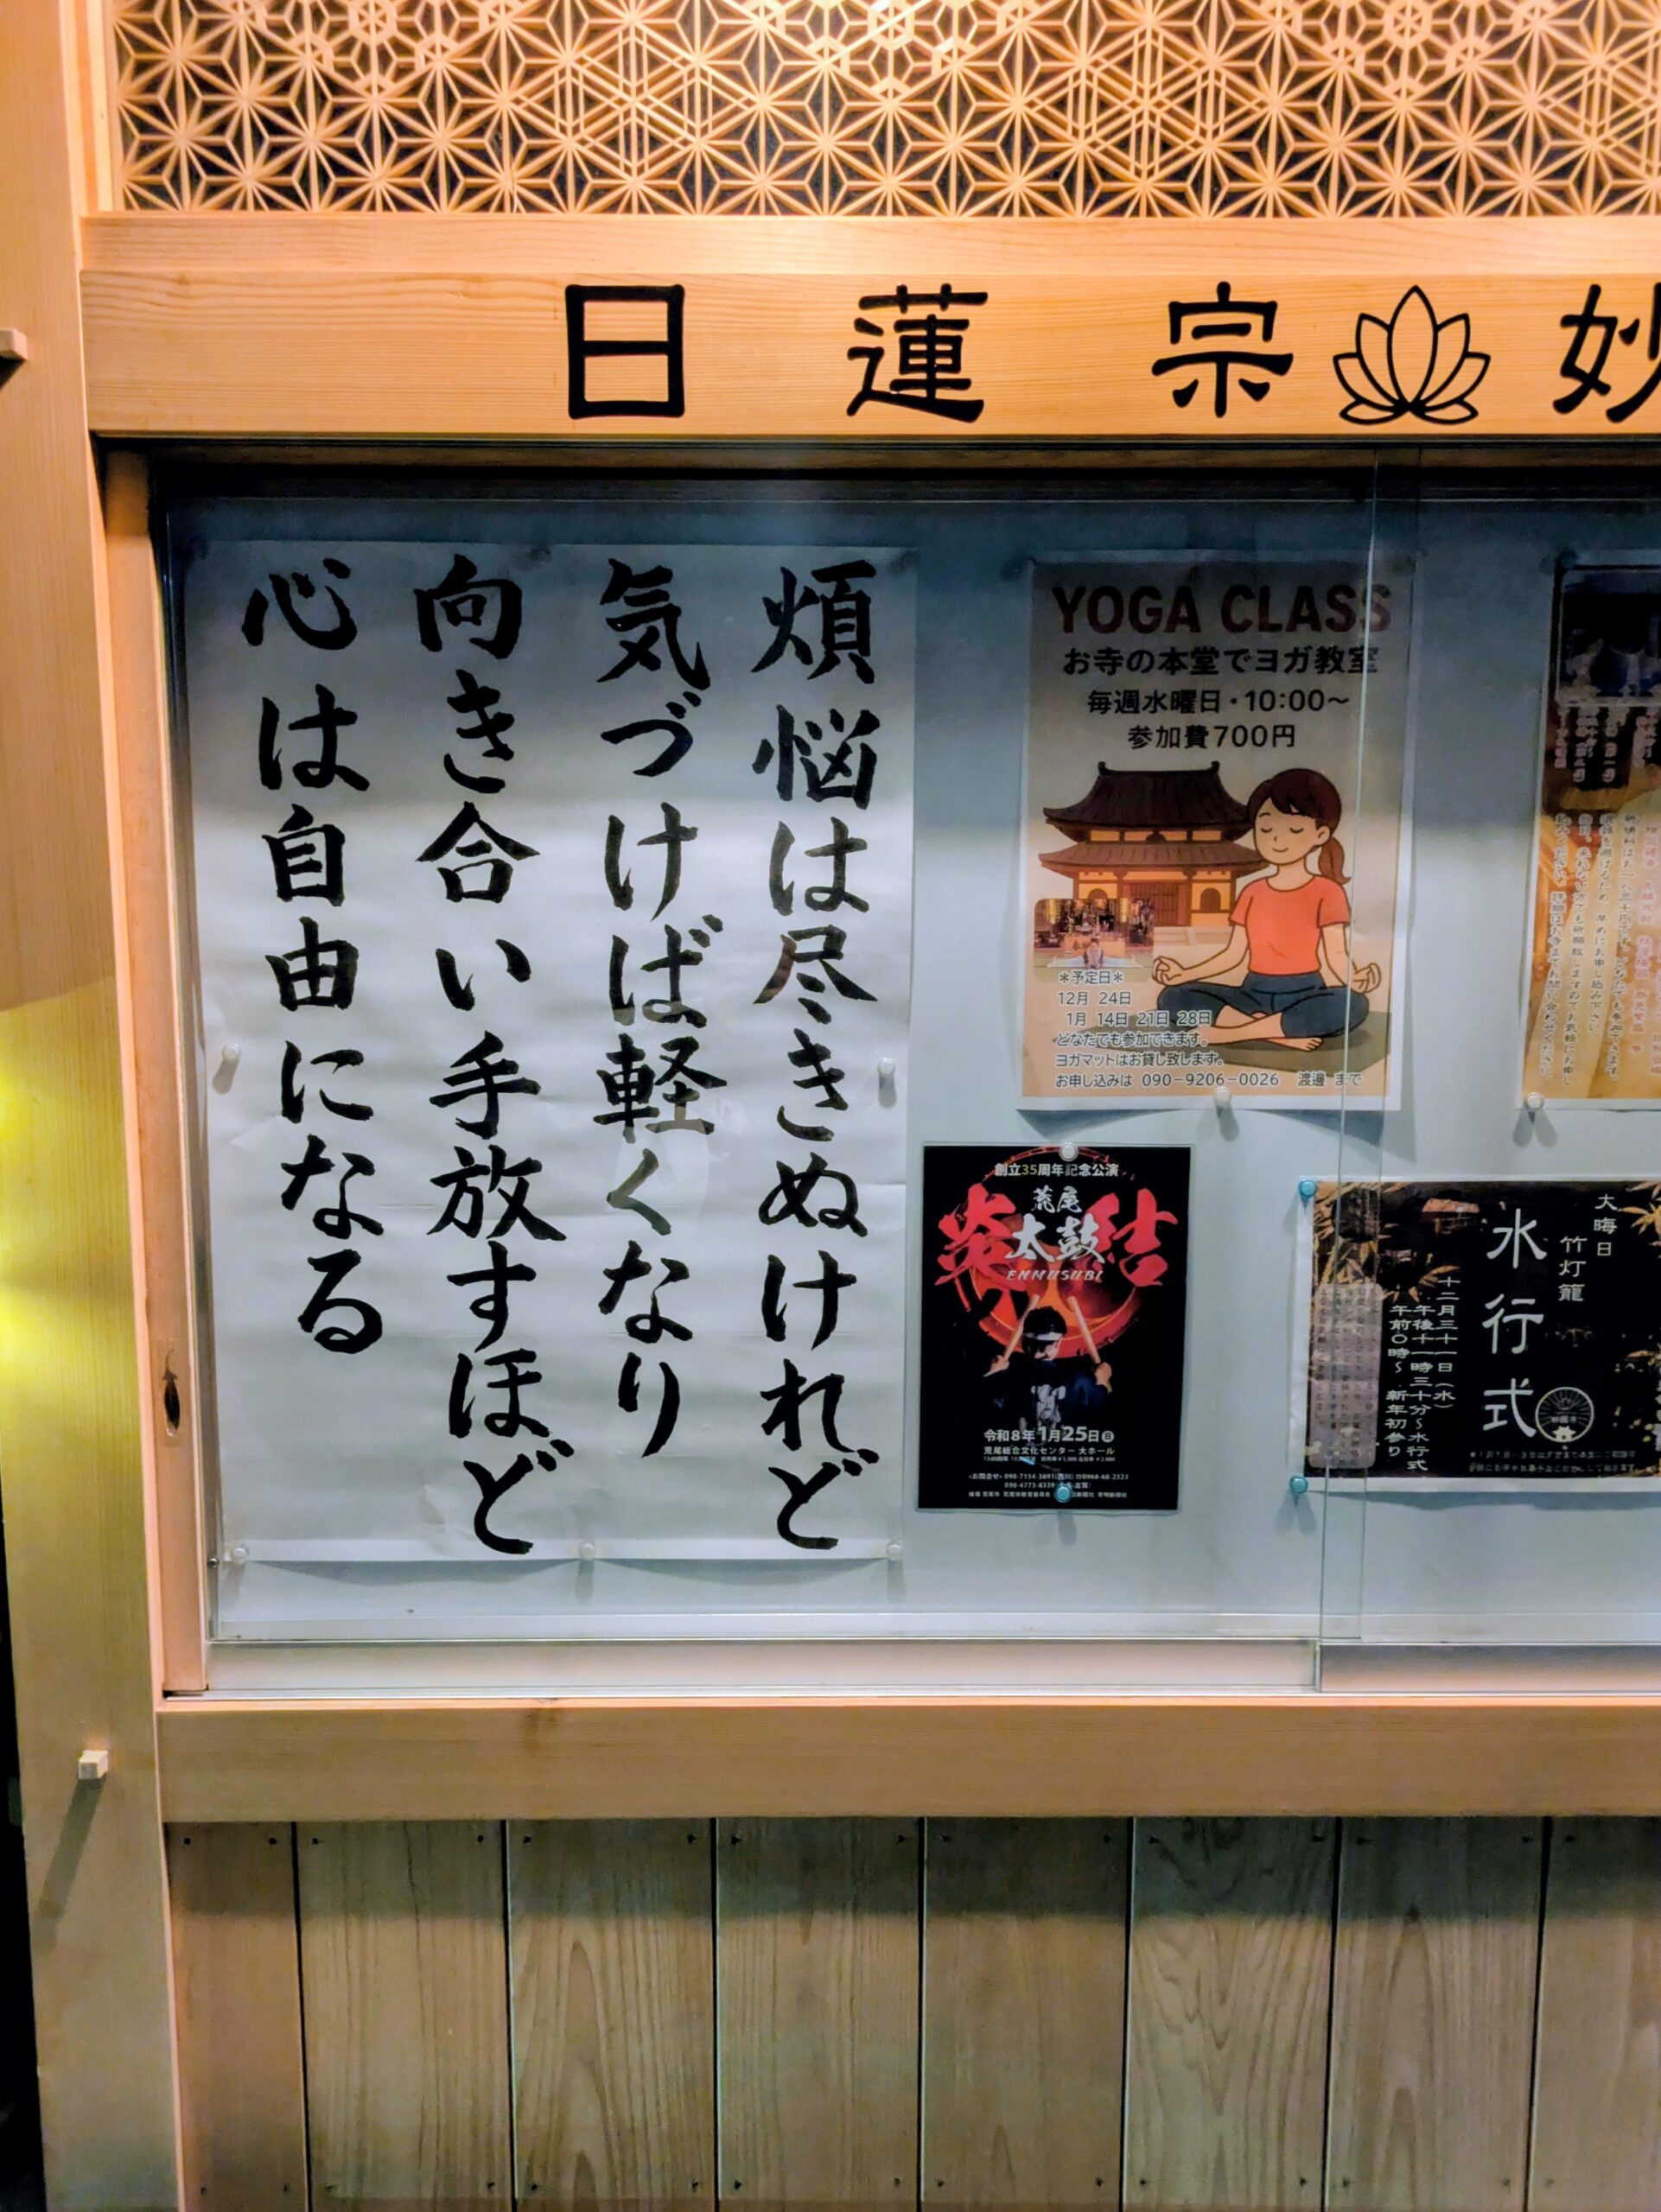 日蓮宗 妙
煩悩は尽きぬけれど
気づけば軽くなり
向き合い手放すほど
心は自由になる
YOGA CLASS
お寺の本堂でヨガ教室
毎週水曜日・10:00〜
参加費700円
*予定日*
12月 24日
1月 14日 21日 28日
どなたでも参加できます。
ヨガマットはお貸し致します。
お申し込みは 090-9206-0026 渡邊 まで
創立35周年記念公演
荒尾
太鼓
炎結
ENMUSUBI
令和8年1月25日日
荒尾総合文化センター 大ホール
大晦日
竹灯籠
水行式
十二月三十一日(水)
午後十一時三十分〜水行式
午前〇時〜 新年初参り